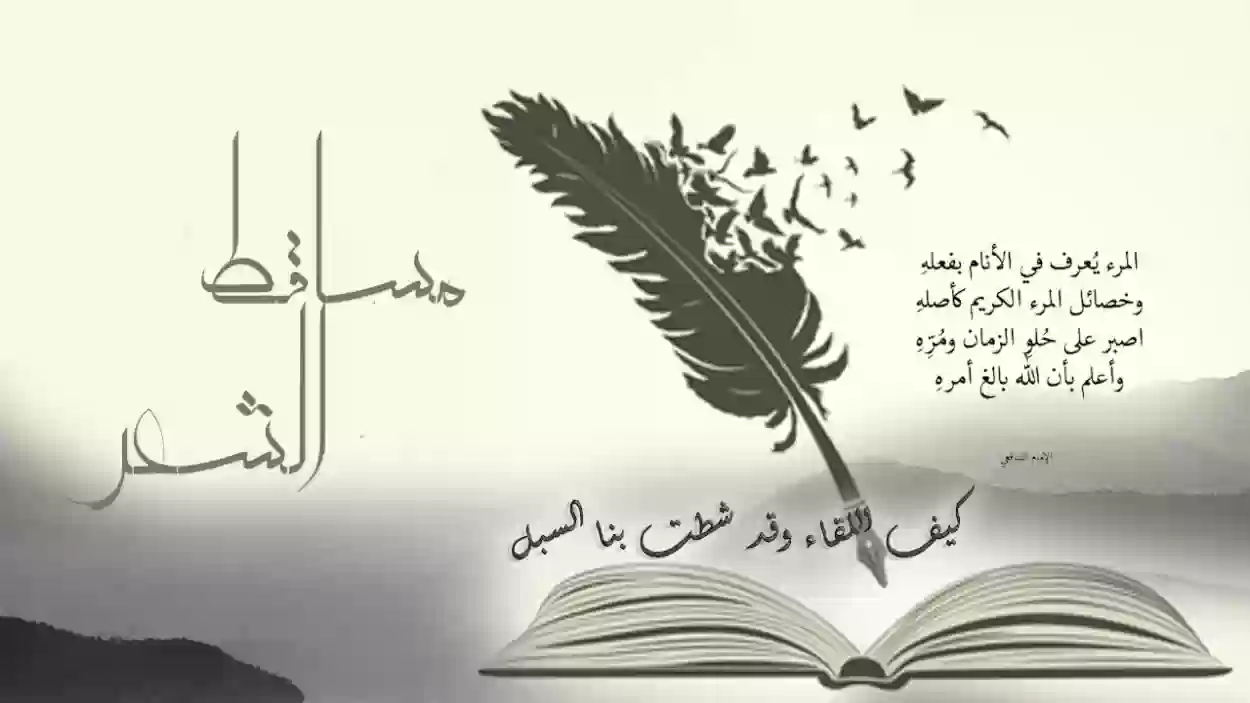 مساقط
الشعر
المرء يُعرف في الأنام بفعلهِ
وخصائل المرء الكريم كأصلهِ
اصبر على حُلوِ الزمان ومُرِّهِ
وأعلم بأن الله بالغ أمرهِ
الإمام الشافعي
كيف اللقاء وقد شطت بنا السبل